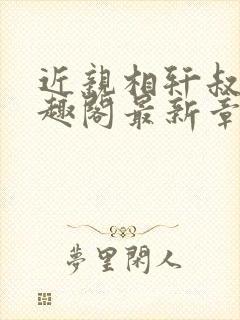 近親相奸叔
趣閣最新章
夢里閑人